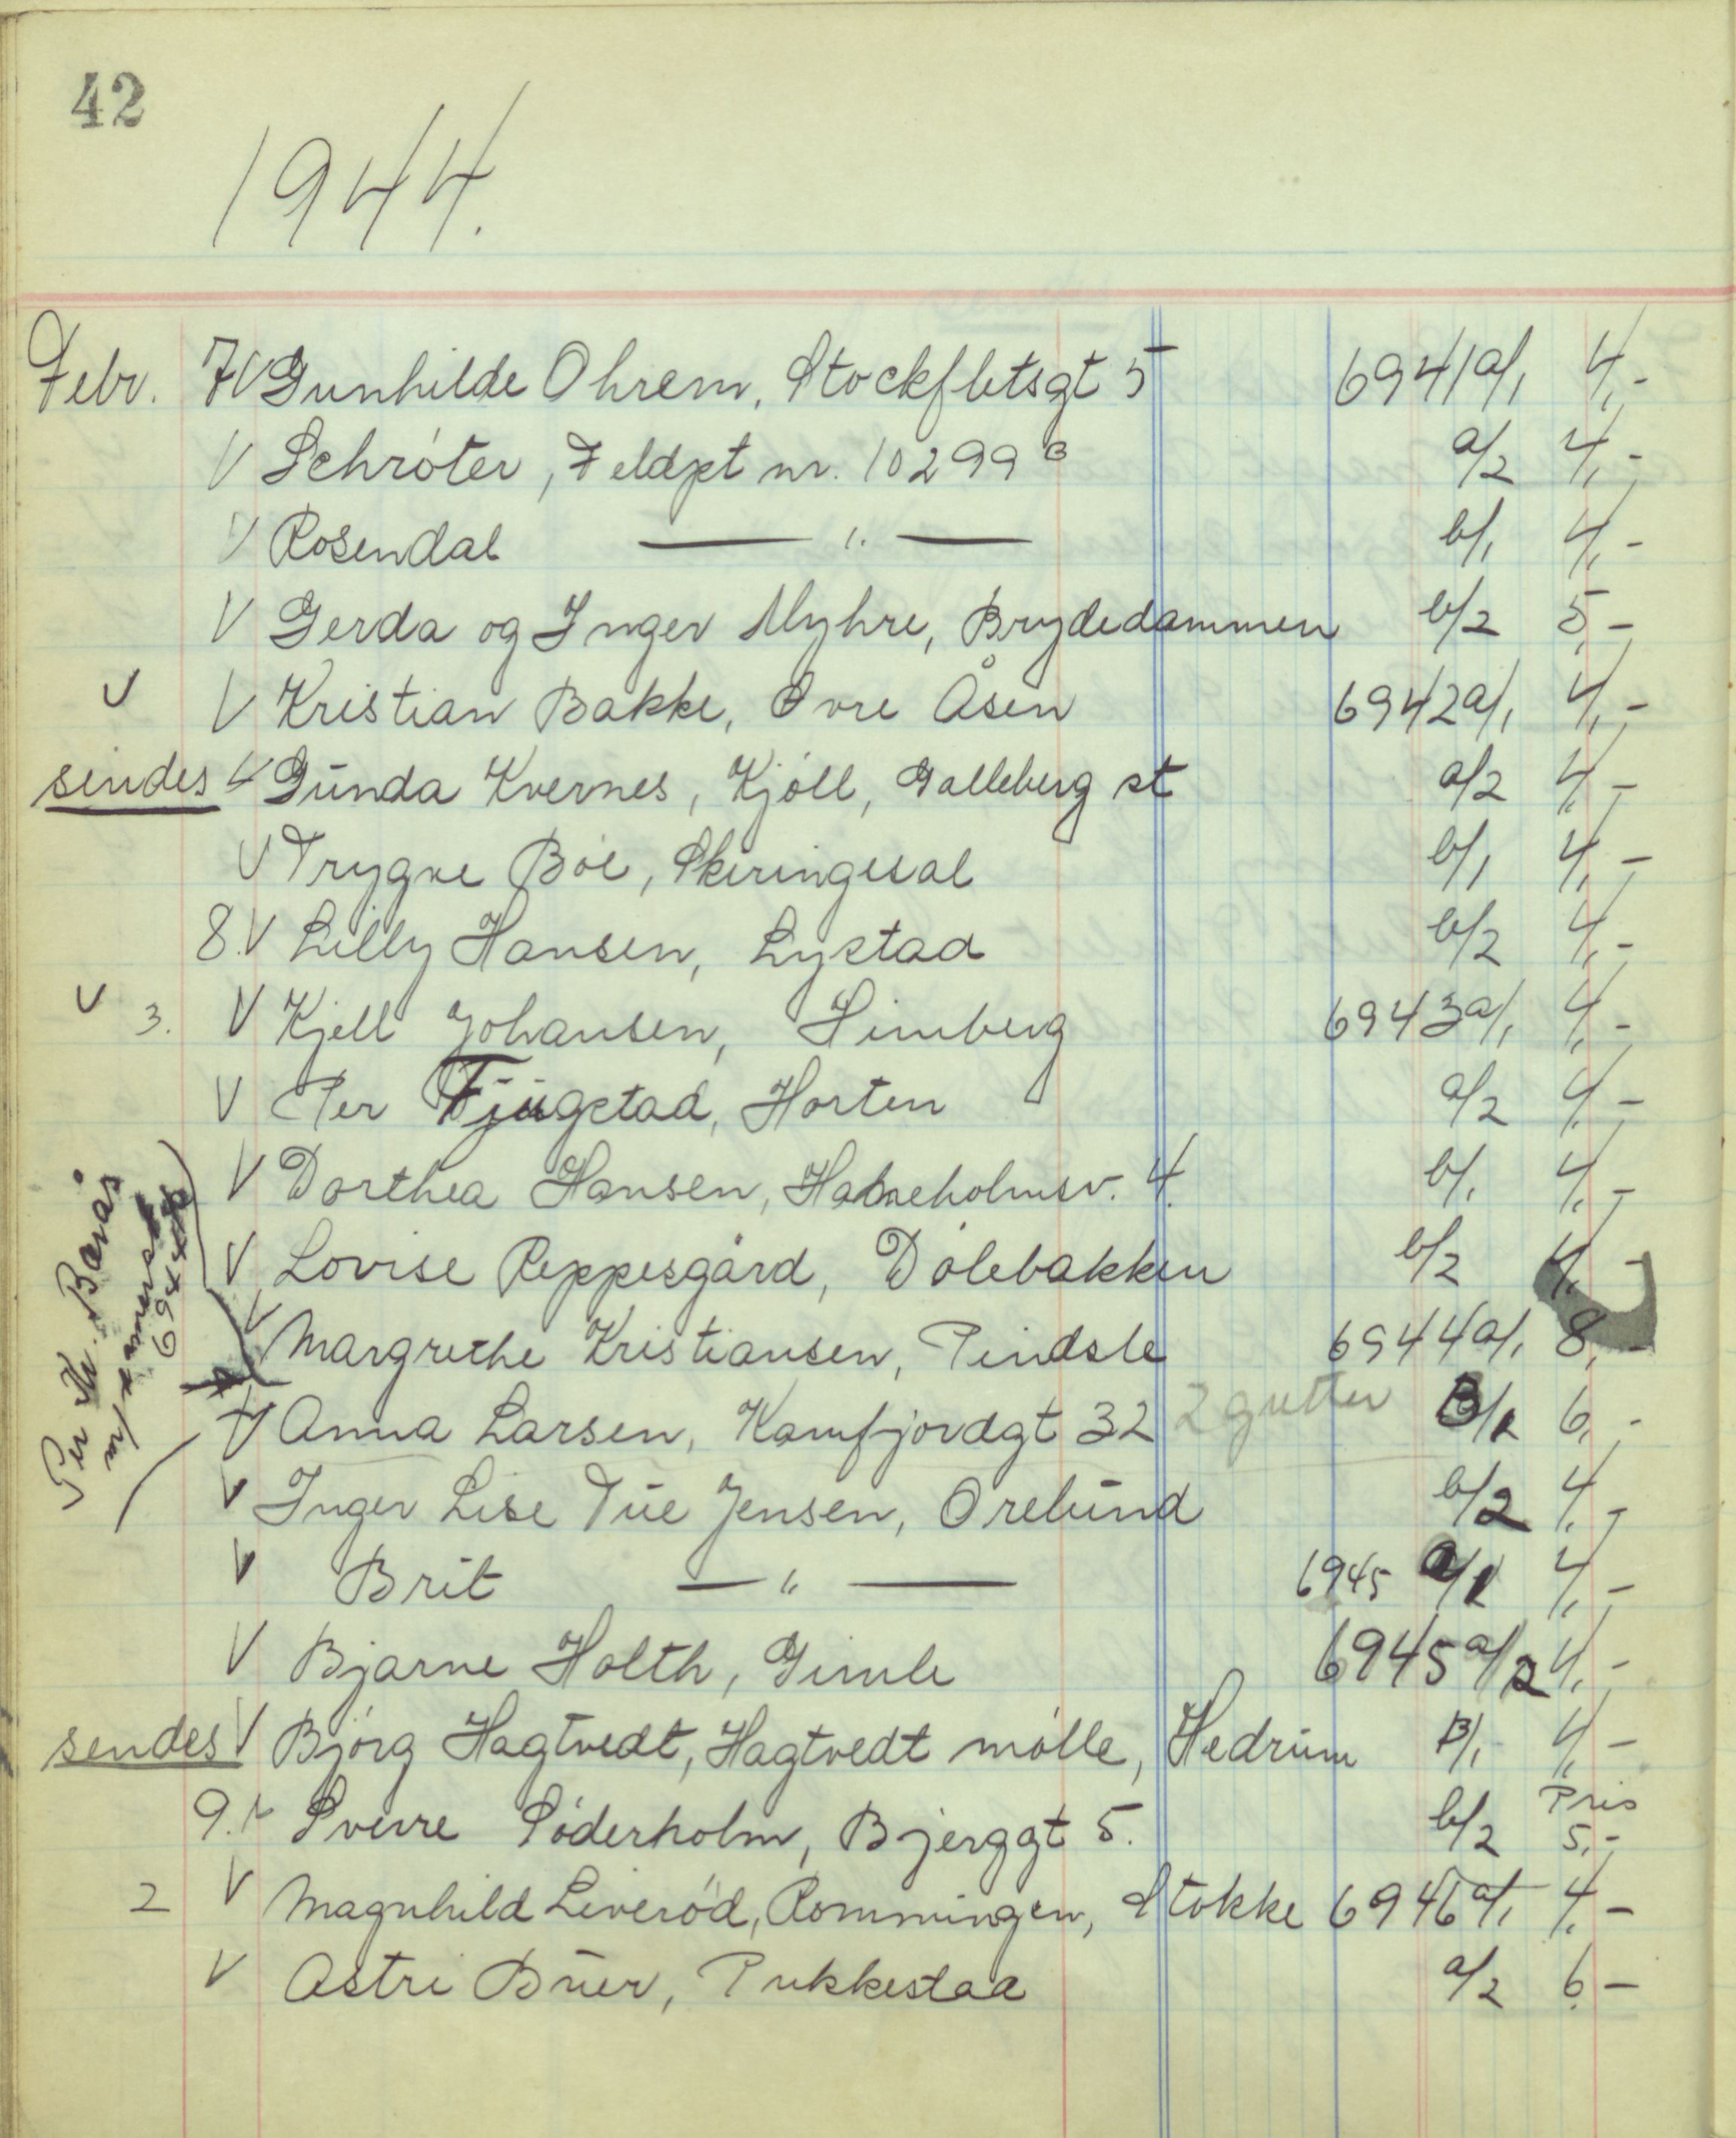 42
1944.
Febr. 7 V Gunhilde Ohrem, Stockfletsgt 5 6941 a/1 4,-
V Schröter, Feldpt nr. 10299 B a/2 4,-
V Rosendal — " — b/1 4,-
V Gerda og Inger Myhre, Brydedammen b/2 5,-
V V Kristian Bakke, Øvre Åsen 6942 a/1 4,-
sendes V Gunda Kvernes, Kjöll, Galleberg st a/2 4,-
V Trygve Böe, Skiringssal b/1 4,-
8. V Lilly Hansen, Lystad b/2 4,-
V 3. V Kjell Johansen, Himberg 6943 a/1 4,-
V Per Fjugstad, Horten a/2 4,-
V Dorthea Hansen, Havneholmsv. 4. b/1 4,-
V Lovise Reppesgård, Dölebakken b/2 4,-
V Margrethe Kristiansen, Pindsle 6944 a/1 8,-
V Anna Larsen, Kamfjordgt 32 2 gutter B/1 6,-
V Inger Lise Tue Jensen, Orelund b/2 4,-
V Brit — " — 6945 a/1 4,-
V Bjarne Holth, Gimle 6945 a/2 4,-
sendes V Björg Hagtvedt, Hagtvedt mölle, Hedrum B/1 4,-
9. V Sverre Söderholm, Bjerggt 5. b/2 Pris 5,-
2 V Magnhild Liveröd, Rommingen, Stokke 6946 a/1 4,-
V Astri Buer, Pukkestad a/2 6,-
Per Kr. Barås
m/
6944